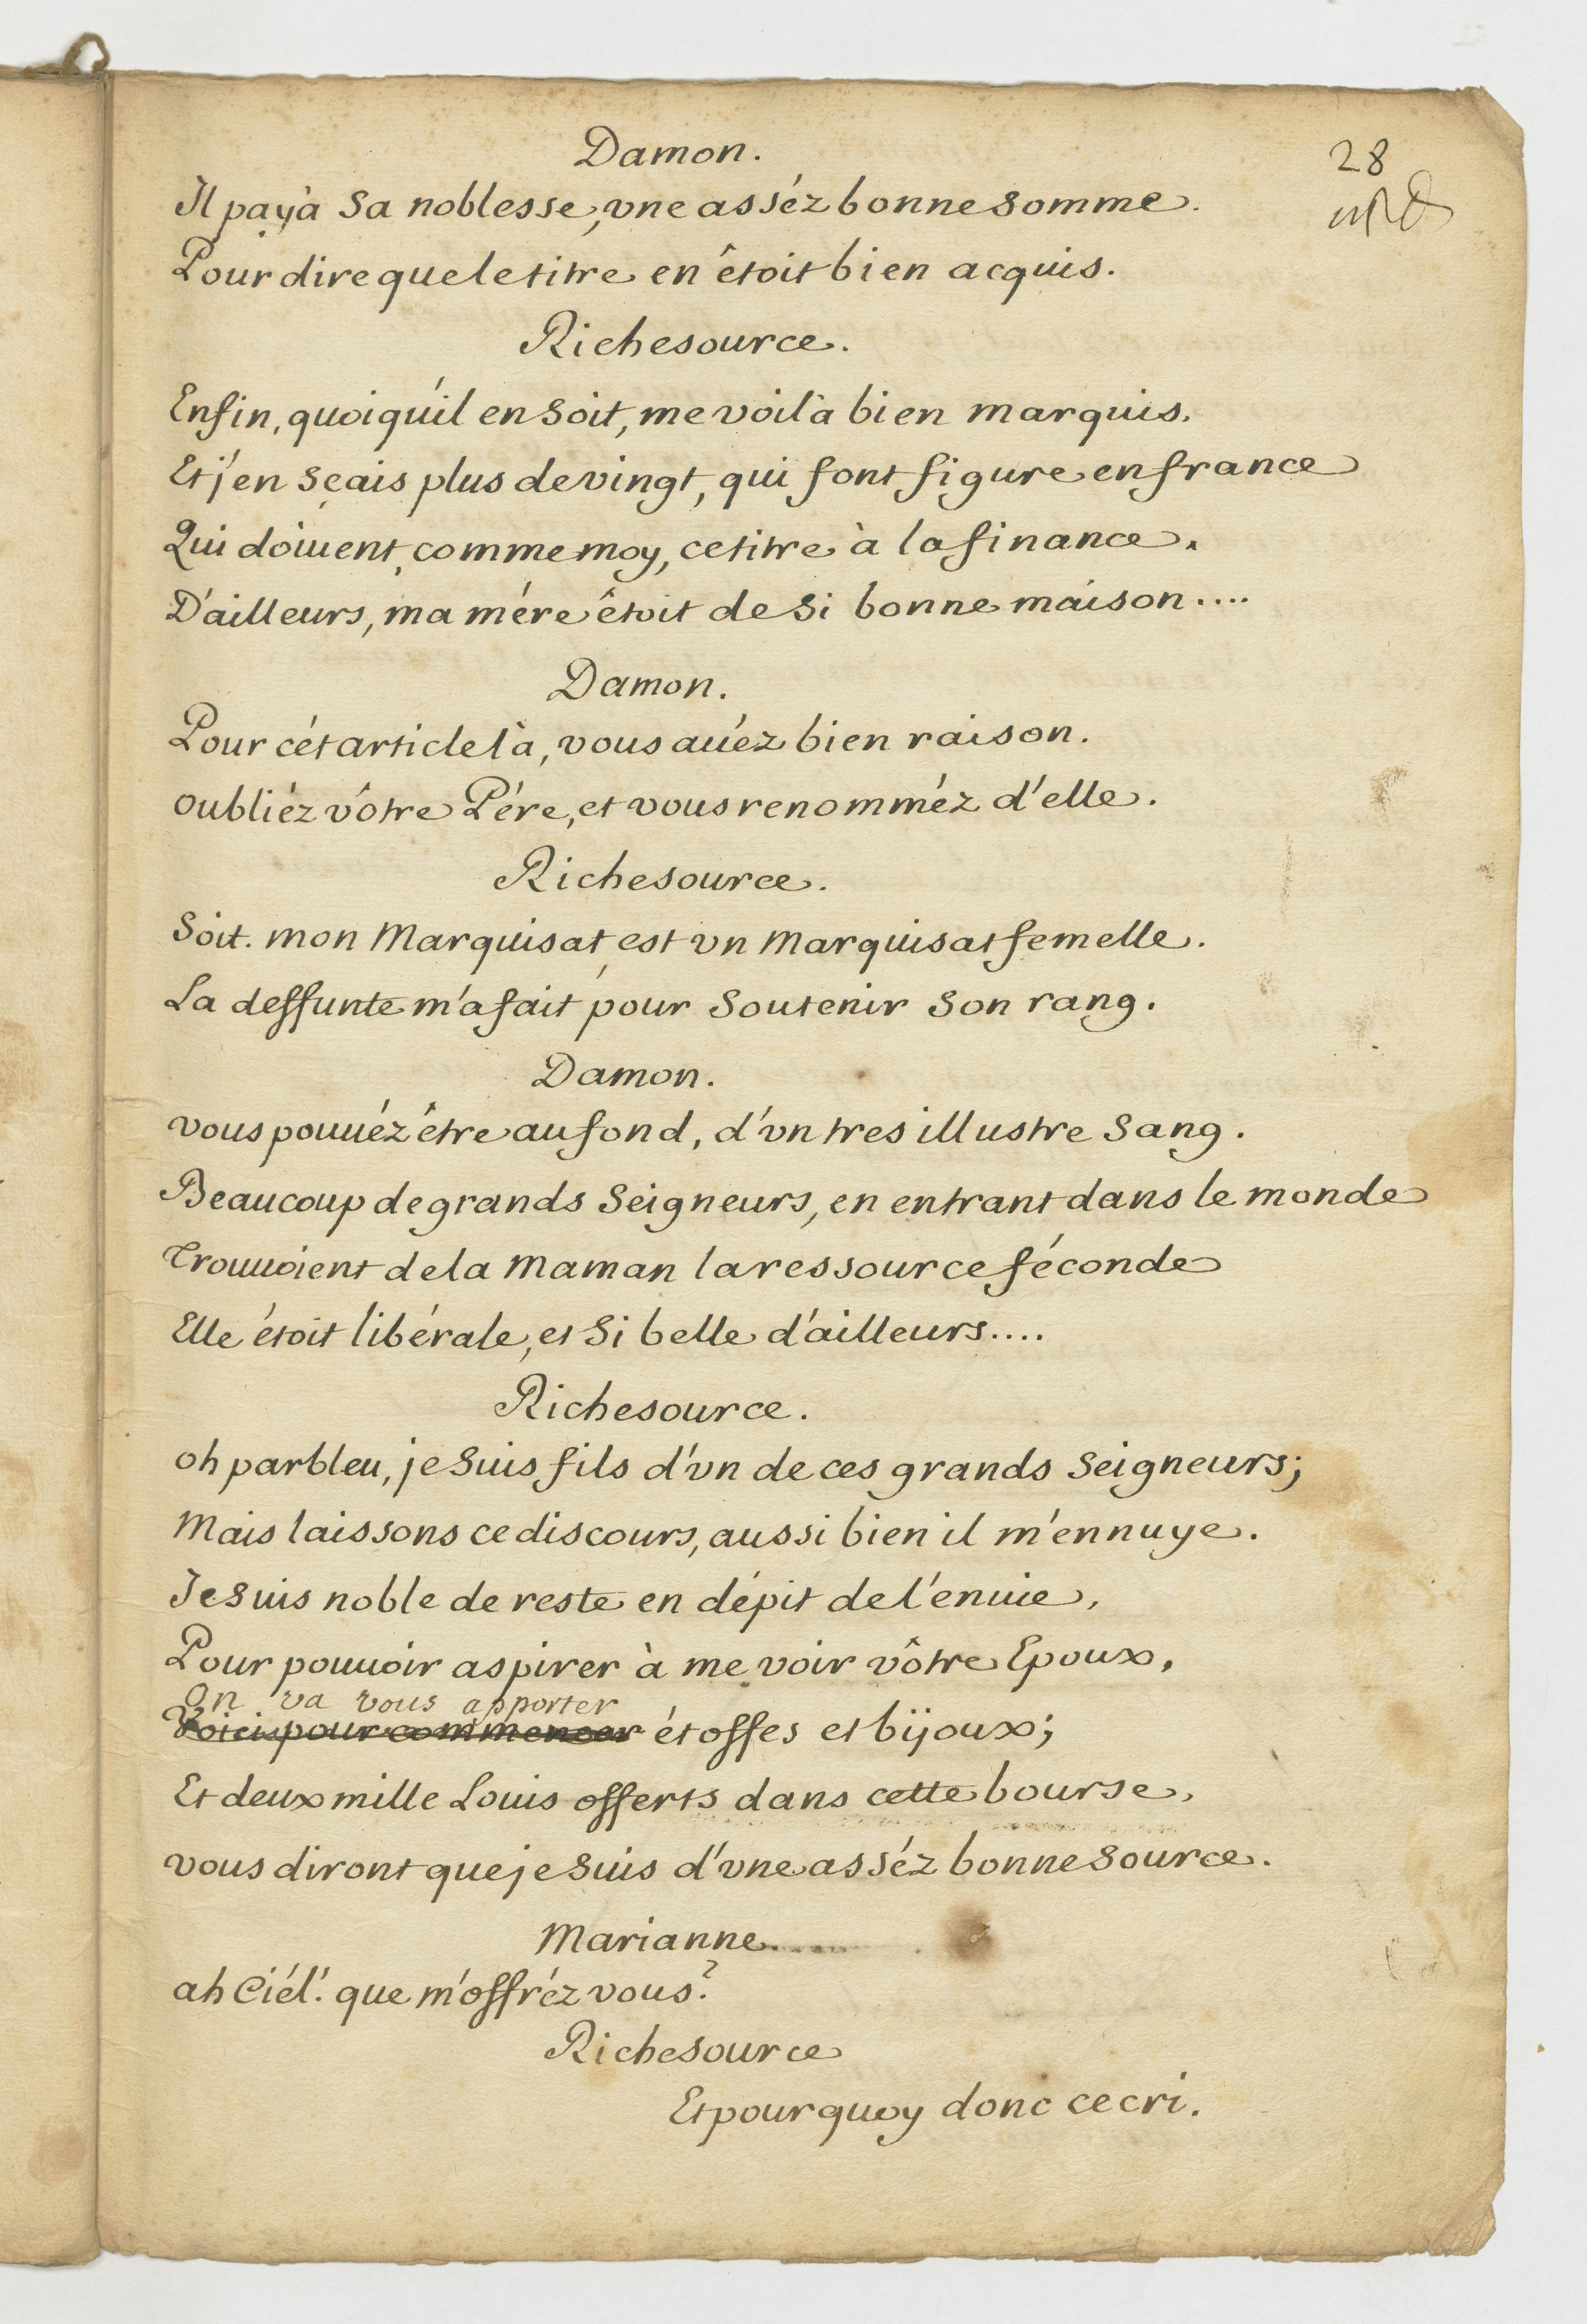 28
Damon.
Il paya sa noblesse, vne asséz bonne somme.
Pour dire que le titre en étoit bien acquis.
Richesource.
Enfin, quoiqu'il en soit, me voilà bien marquis.
Et j'en sçais plus de vingt, qui font figure en france
Qui doiuent, comme moy, ce titre à la finance.
D'ailleurs, ma mére étoit de si bonne maison....
Damon.
Pour cét article là, vous auéz bien raison.
oubliéz vôtre Pére, et vous renomméz d'elle.
Richesource.
Soit. mon Marquisat, est vn Marquisat femelle.
La deffunte m'a fait pour soutenir son rang.
Damon.
vous pouuéz être au fond, d'vn tres illustre sang.
Beaucoup de grands Seigneurs, en entrant dans le monde
Trouuoient de la Maman la ressource féconde
Elle étoit libérale, et si belle d'ailleurs....
Richesource.
oh parbleu, je suis fils d'vn de ces grands Seigneurs;
Mais laissons ce discours, aussi bien il m'ennuye.
Je suis noble de reste en dépit de l'enuie,
Pour pouuoir aspirer à me voir vôtre Epoux,
On va vous apporter
Voici pour commencer étoffes et bijoux;
Et deux mille Louis offerts dans cette bourse,
vous diront que je suis d'vne asséz bonne source.
Marianne.
ah Ciél! que m'offréz vous?
Richesource
Et pourquoy donc ce cri.